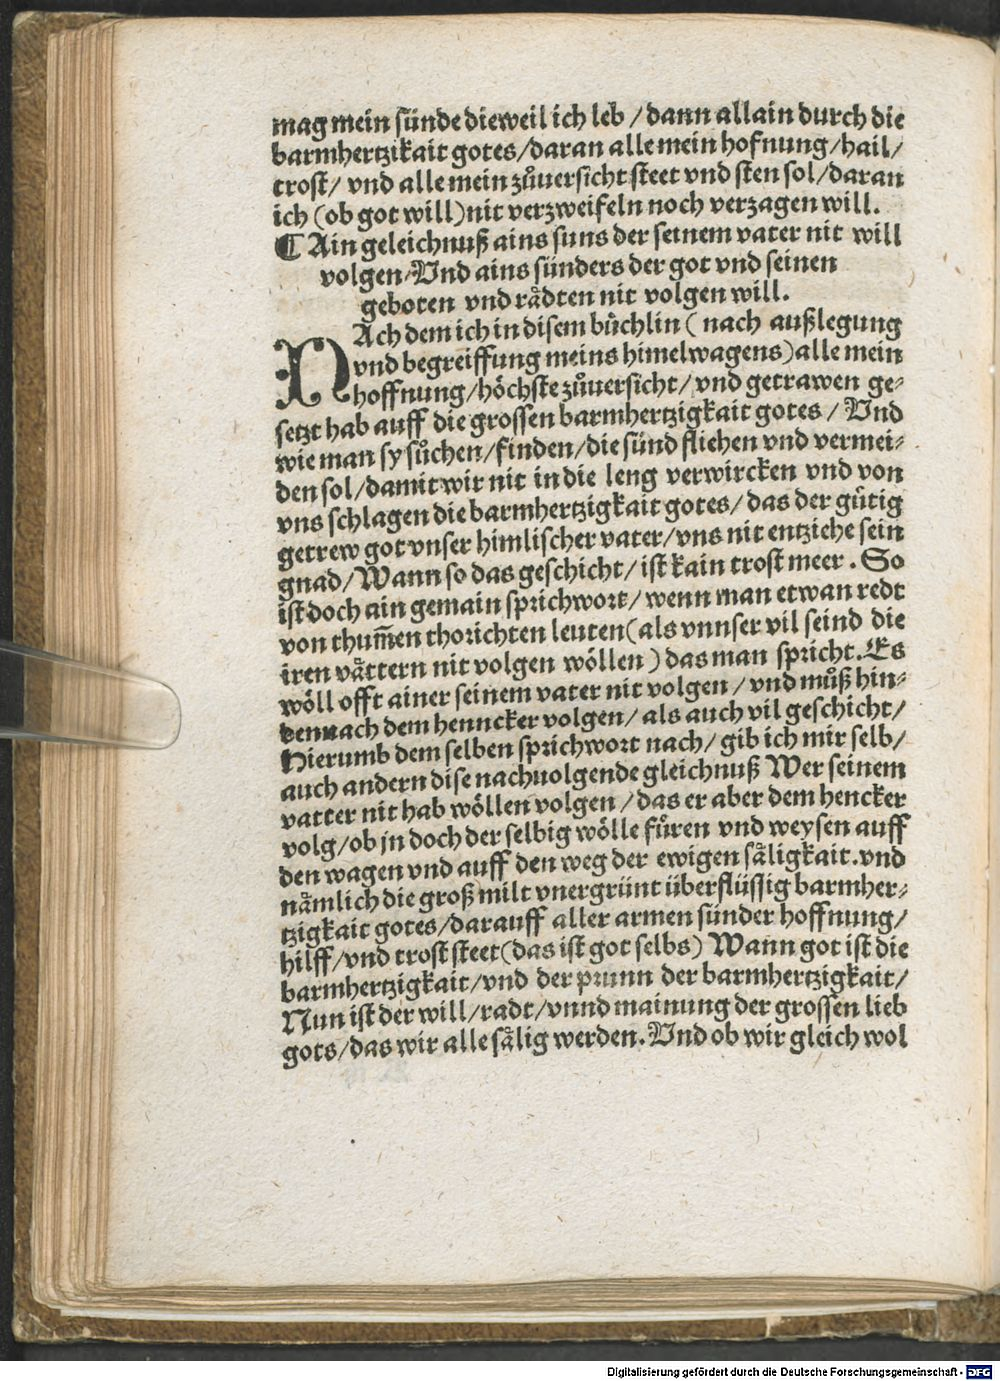 mag mein sünde dieweil ich leb / dann allain durch die
barmhertzikait gotes/daran alle mein hofnung/hail/
trost/ vnd alle mein zůuersicht steet vnd sten sol/daran
ich (ob got will)nit verzweifeln noch verzagen will.
¶ Ain geleichnuß ains suns der seinem vater nit will
volgen/Vnd ains sünders der got vnd seinen
geboten vnd rådten nit volgen will.
NAch dem ich in disem bůchlin ( nach außlegung
vnd begreiffung meins himelwagens)alle mein
hoffnung/höchste zůuersicht/vnd getrawen ge⸗
setzt hab auff die grossen barmhertzigkait gotes / Vnd
wie man sy sůchen/finden/die sünd fliehen vnd vermei⸗
den sol/damit wir nit in die leng verwircken vnd von
vns schlagen die barmhertzigkait gotes/ das der gůtig
getrew got vnser himlischer vater/vns nit entziehe sein
gnad/Wann so das geschicht/ist kain trost meer . So
ist doch ain gemain sprichwort/wenn man etwan redt
von thum̄en thorichten leuten(als vnnser vil seind die
iren våttern nit volgen wöllen ) das man spricht. Es
wöll offt ainer seinem vater nit volgen / vnd můß hin⸗
dennach dem henncker volgen/ als auch vil geschicht/
Hierumb dem selben sprichwort nach/ gib ich mir selb/
auch andern dise nachuolgende gleichnuß Wer seinem
vatter nit hab wöllen volgen / das er aber dem hencker
volg/ob jn doch der selbig wölle fůren vnd weysen auff
den wagen vnd auff den weg der ewigen såligkait.vnd
nåmlich die groß milt vnergrünt überflüssig barmher⸗
tzigkait gotes/darauff aller armen sünder hoffnung/
hilff/vnd trost steet(das ist got selbs) Wann got ist die
barmhertzigkait/vnd der prunn der barmhertzigkait/
Nun ist der will/radt/vnnd mainung der grossen lieb
gots/das wir alle sålig werden. Vnd ob wir gleich wol
Digitalisierung gefördert durch die Deutsche Forschungsgemeinschaft - DFG